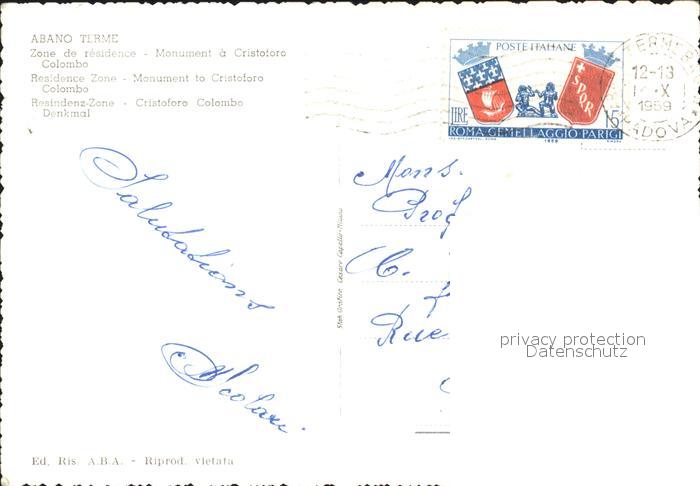 ABANO TERME
Zone de résidence - Monument à Cristoforo
Colombo
Residence Zone - Monument to Cristoforo
Colombo
Resindenz-Zone - Cristoforo Colombo
Denkmal
POSTE ITALIANE
LIRE
SPQR
15
ROMA GEMELLAGGIO PARIGI
1959
TERME
12-13
X
1959
PADOVA
Salutations
Mons.
Prof
Rue
Stab. Grafico Cesare Capello-Milano
privacy protection
Datenschutz
Ed. Ris. A.B.A. - Riprod. vietata